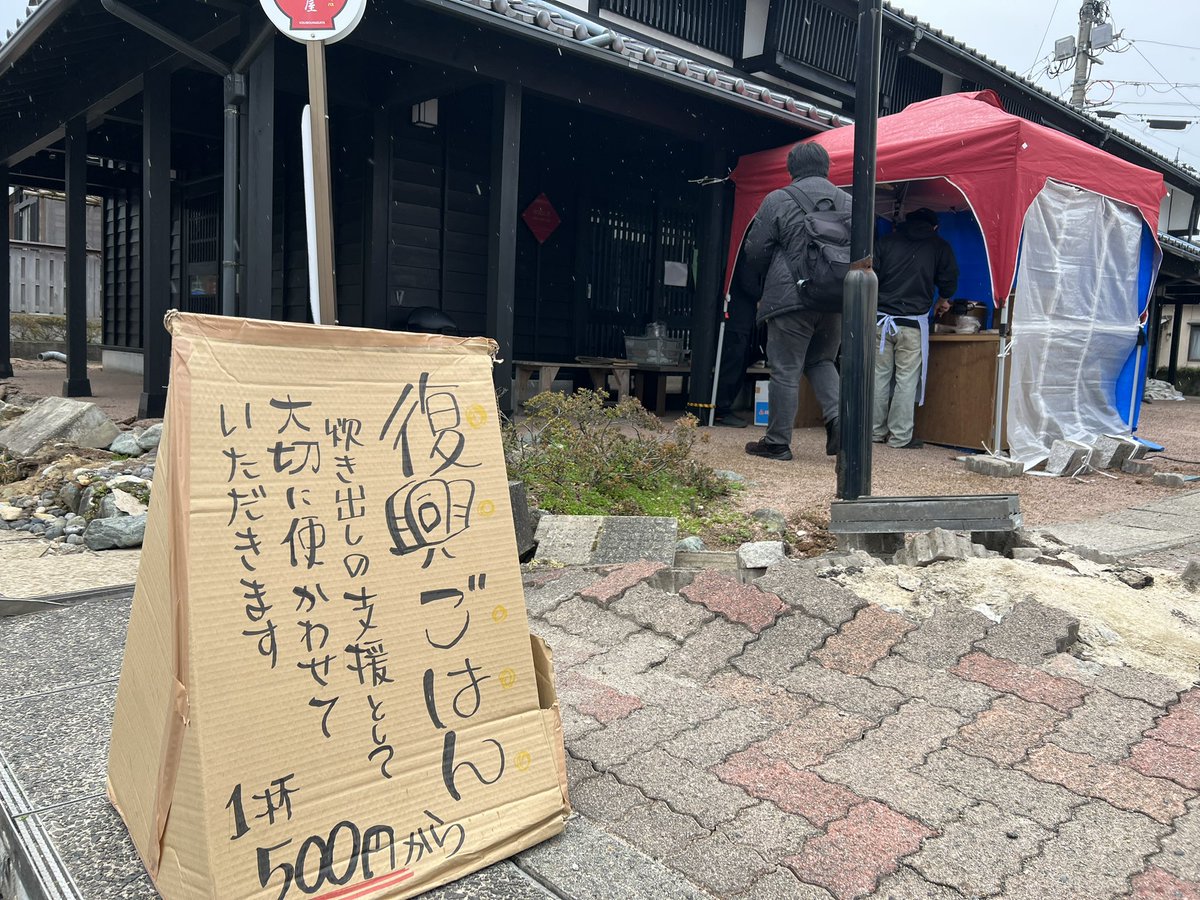 屋
復興ごはん
炊き出しの支援として
大切に使かわせて
いただきます
1杯
500円から